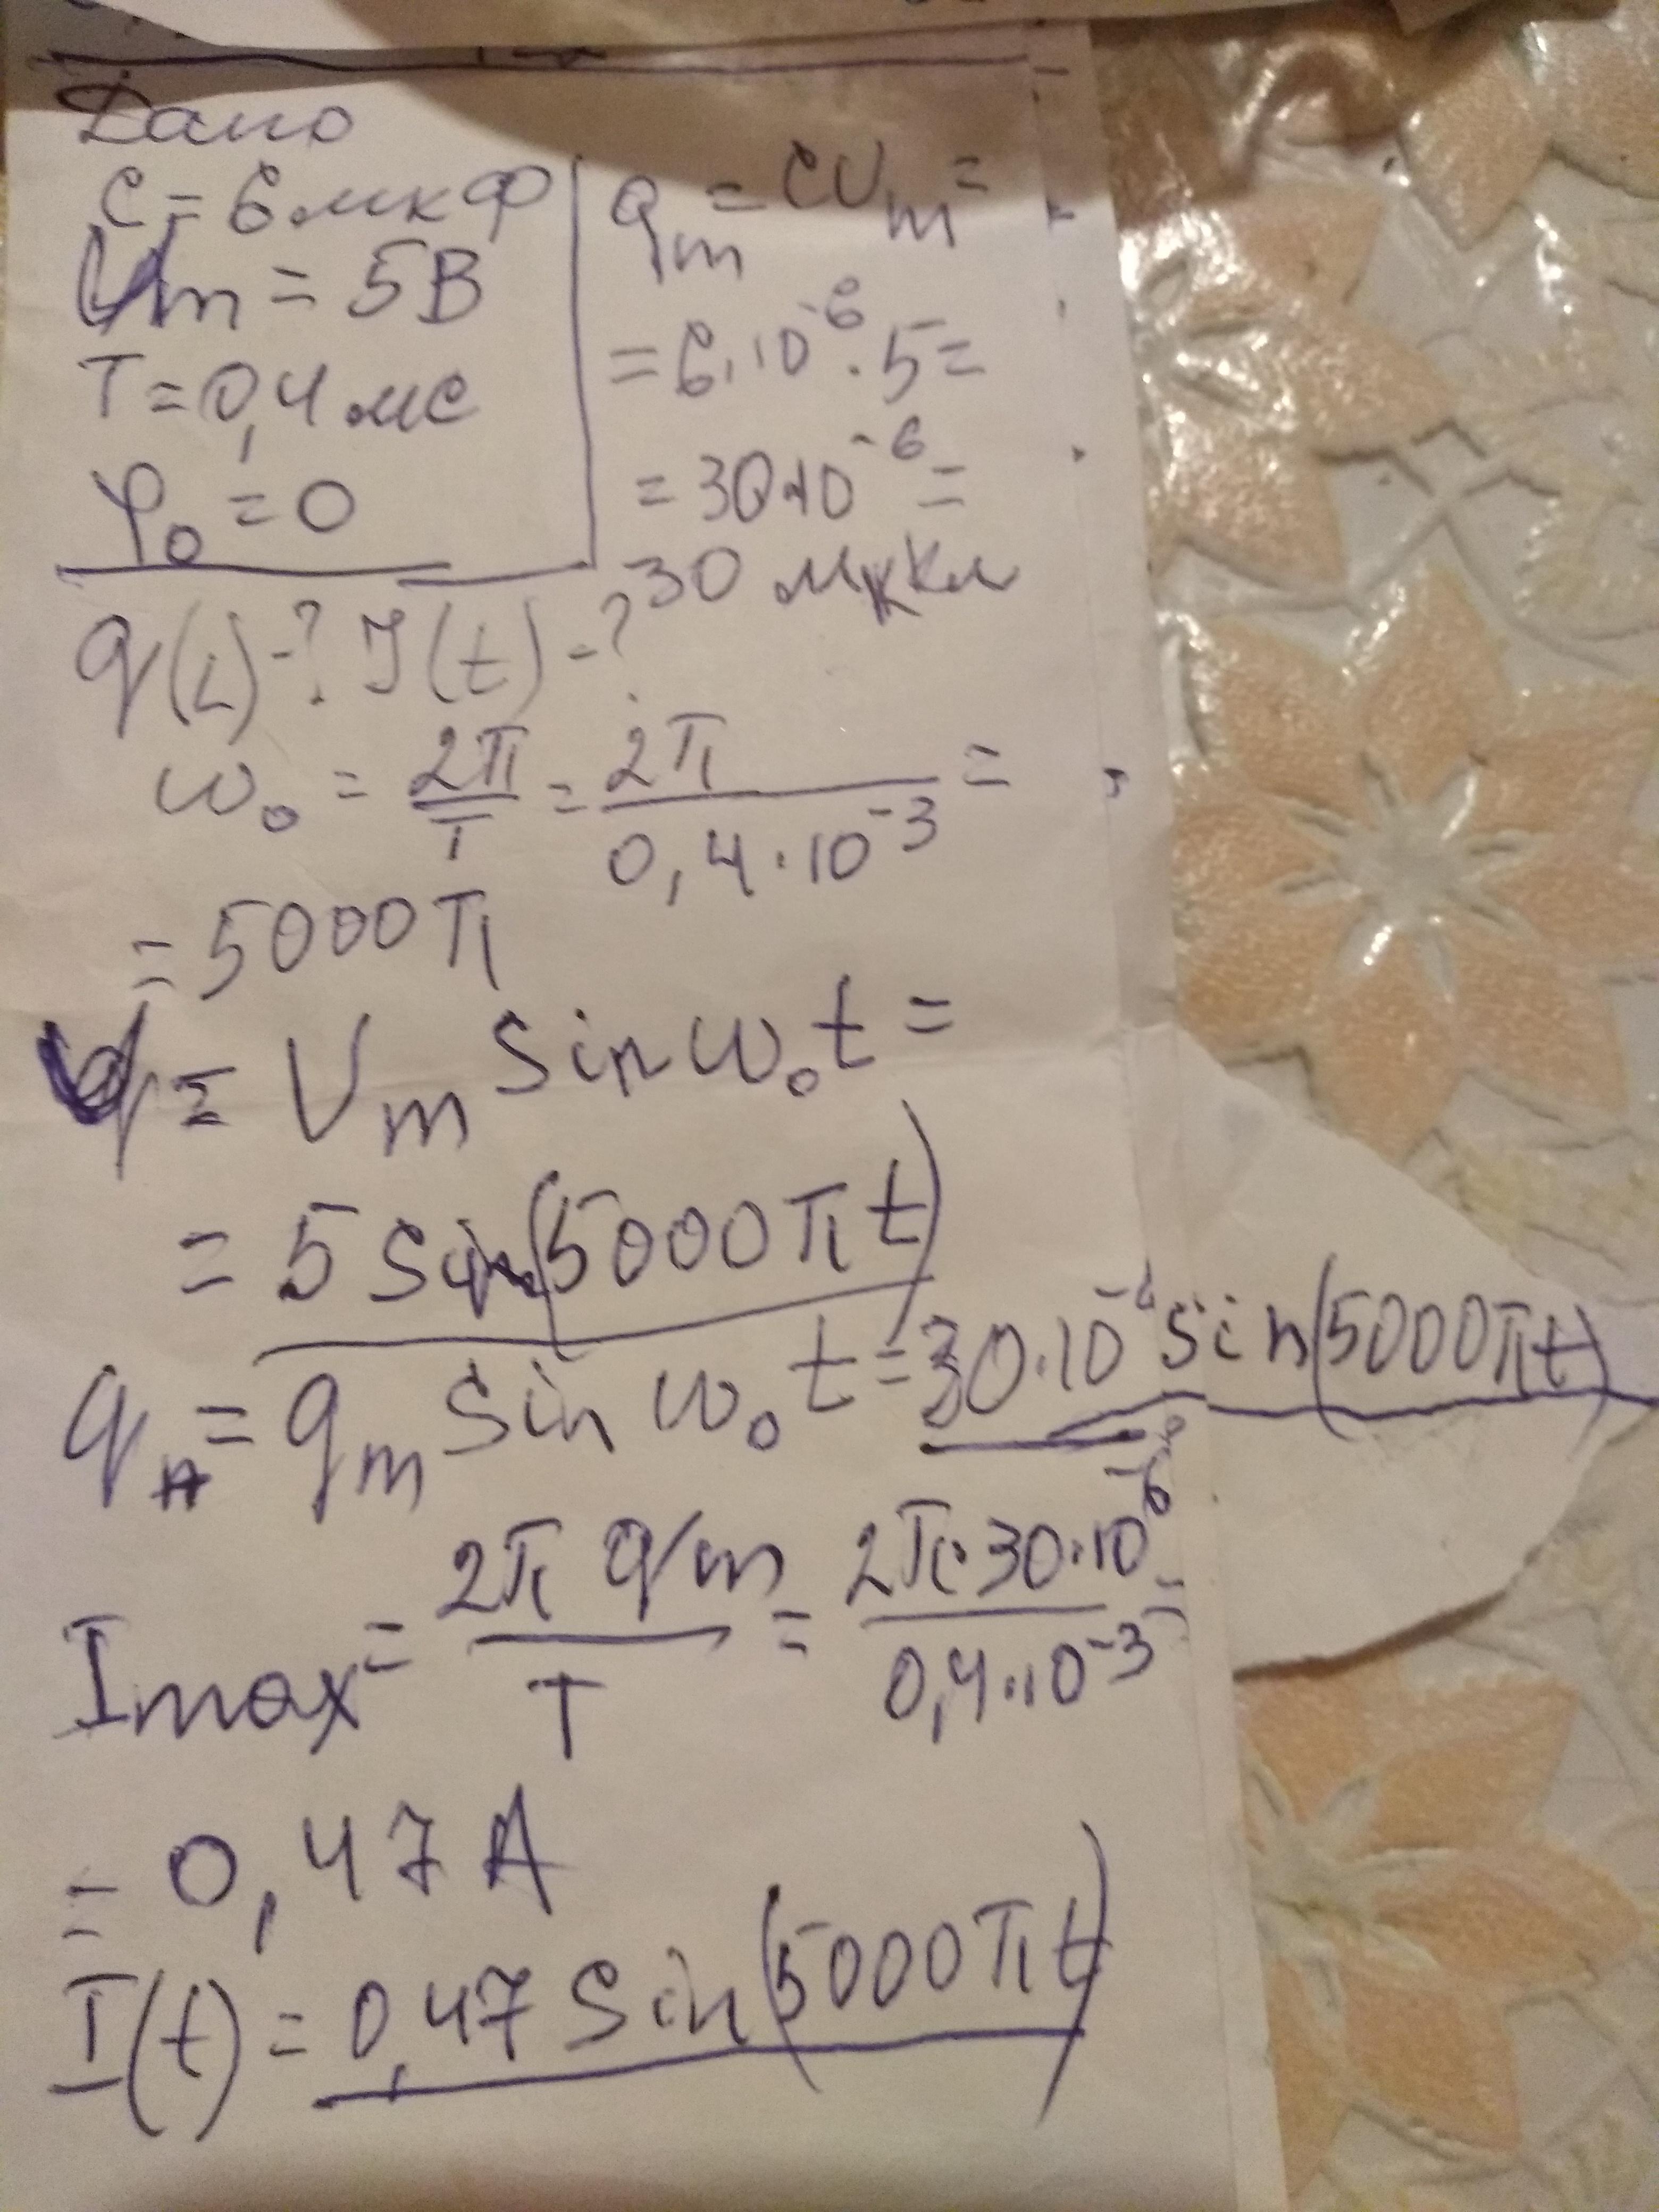 Дано
C = 6 мкФ
Um = 5В
T = 0,4 мс
φ₀ = 0
q(t) - ? I(t) - ?
qm = CUm =
= 6·10⁻⁶·5 =
= 30·10⁻⁶ =
30 мкКл
ω₀ = 2π/T = 2π/0,4·10⁻³ =
= 5000π
= Um sin ω₀t =
= 5 sin(5000πt)
q = qm sin ω₀t = 30·10⁻⁶ sin(5000πt)
Imax = 2π qm/T = 2π·30·10⁻⁶/0,4·10⁻³ =
= 0,47 А
I(t) = 0,47 sin(5000πt)